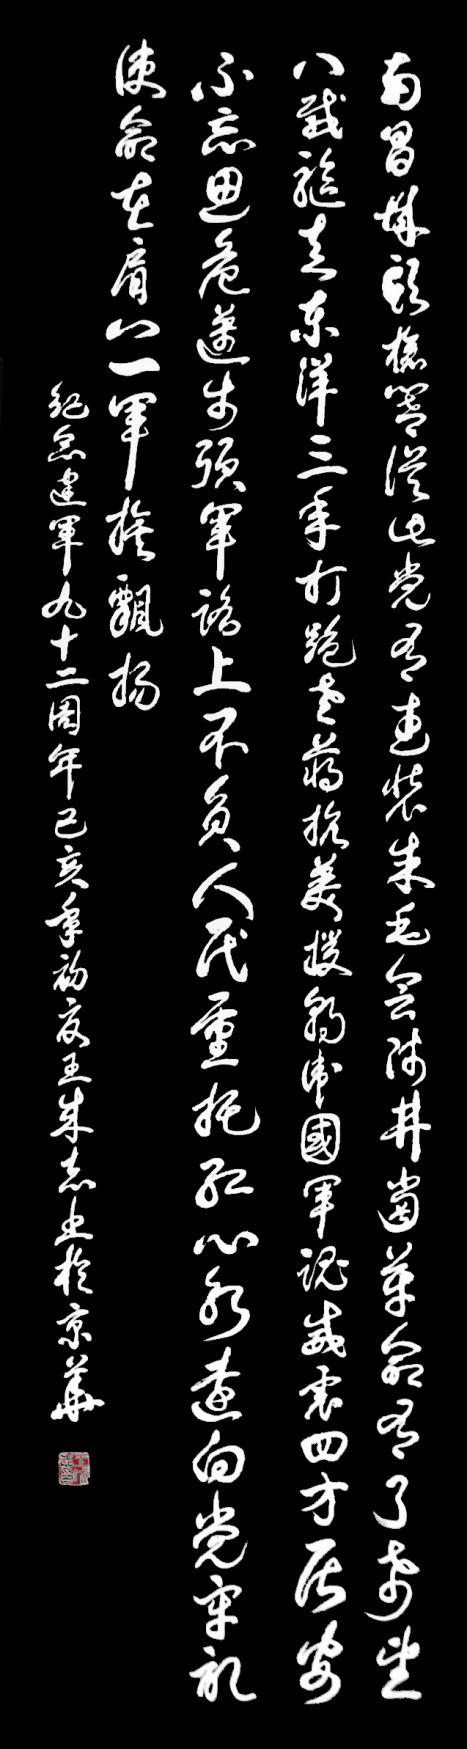 南昌城头枪响从此党有武装朱毛会师井岗革命有了希望
八载驱走东洋三年打跑老蒋抗美援朝卫國军魂威震四方居安
不忘思危迈步强军路上不负人民重托红心永远向党牢记
使命在肩八一军旗飘扬
纪念建军九十二周年己亥年初夏王朱志书於京華